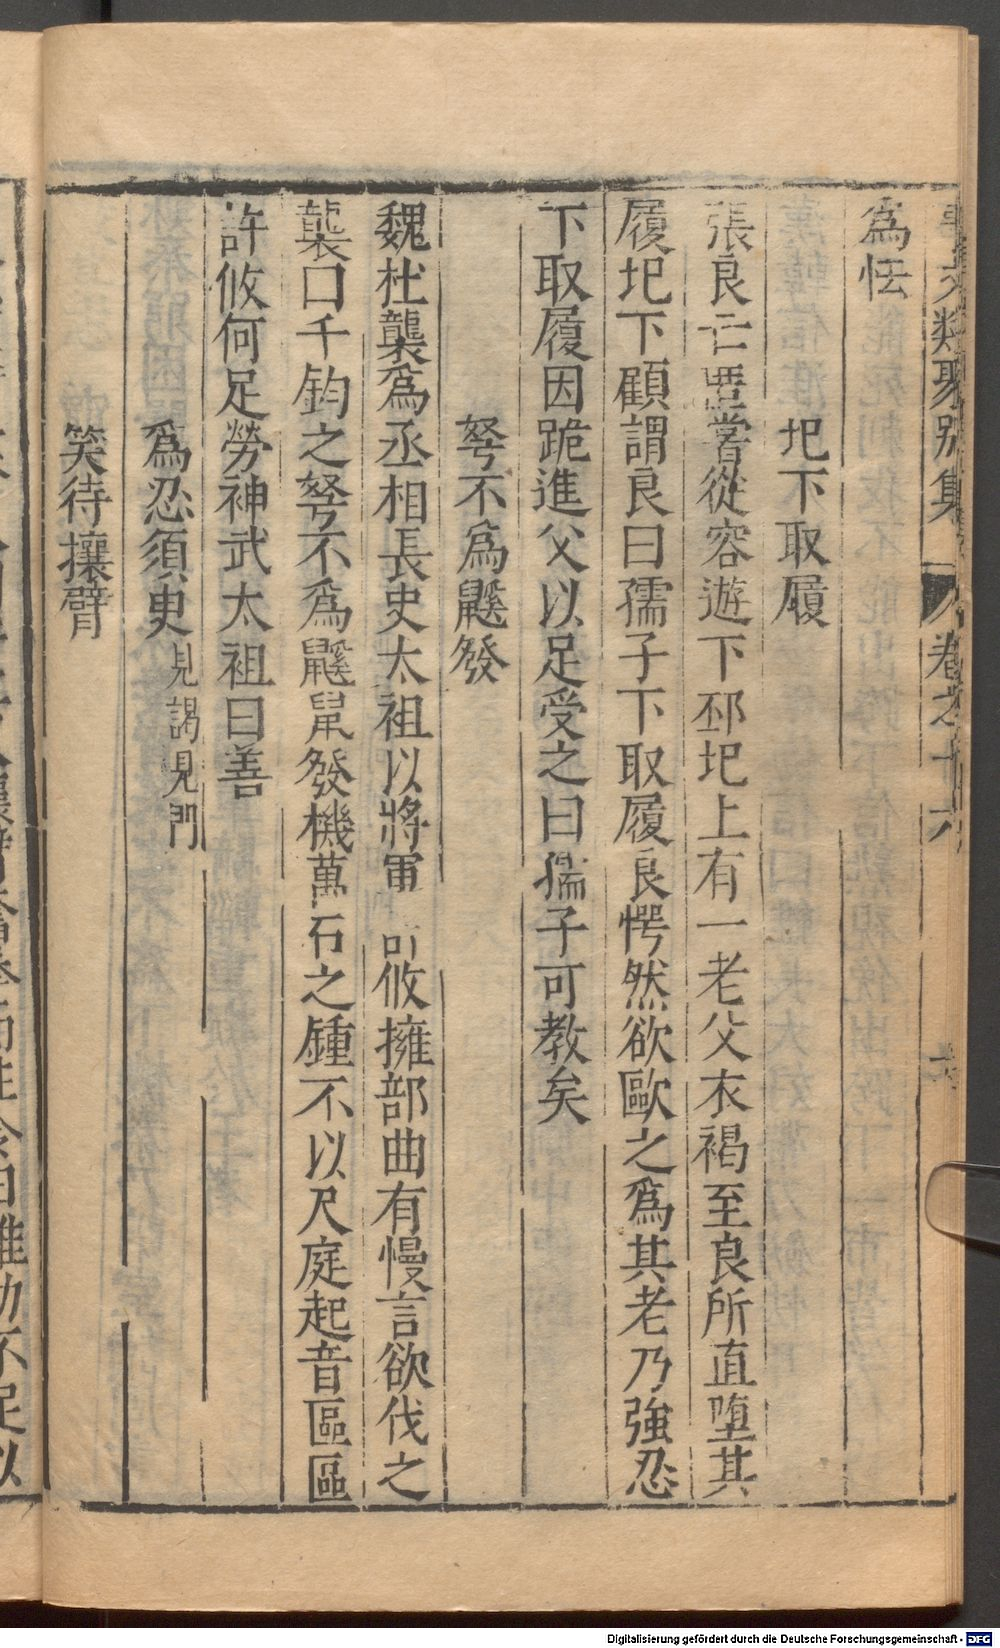 事文類聚別集 卷之十六 六
為怯
圯下取履
張良亡匿嘗從容遊下邳圯上有一老父衣褐至良所直墮其
履圯下顧謂良曰孺子下取履良愕然欲歐之為其老乃強忍
下取履因跪進父以足受之曰孺子可教矣
弩不為鼷發
魏杜襲為丞相長史太祖以將軍許攸擁部曲有慢言欲伐之
襲曰千鈞之弩不為鼷鼠發機萬石之鍾不以尺庭起音區區
許攸何足勞神武太祖曰善
為忍須臾 見謁見門
笑待攘臂
Digitalisierung gefördert durch die Deutsche Forschungsgemeinschaft - DFG